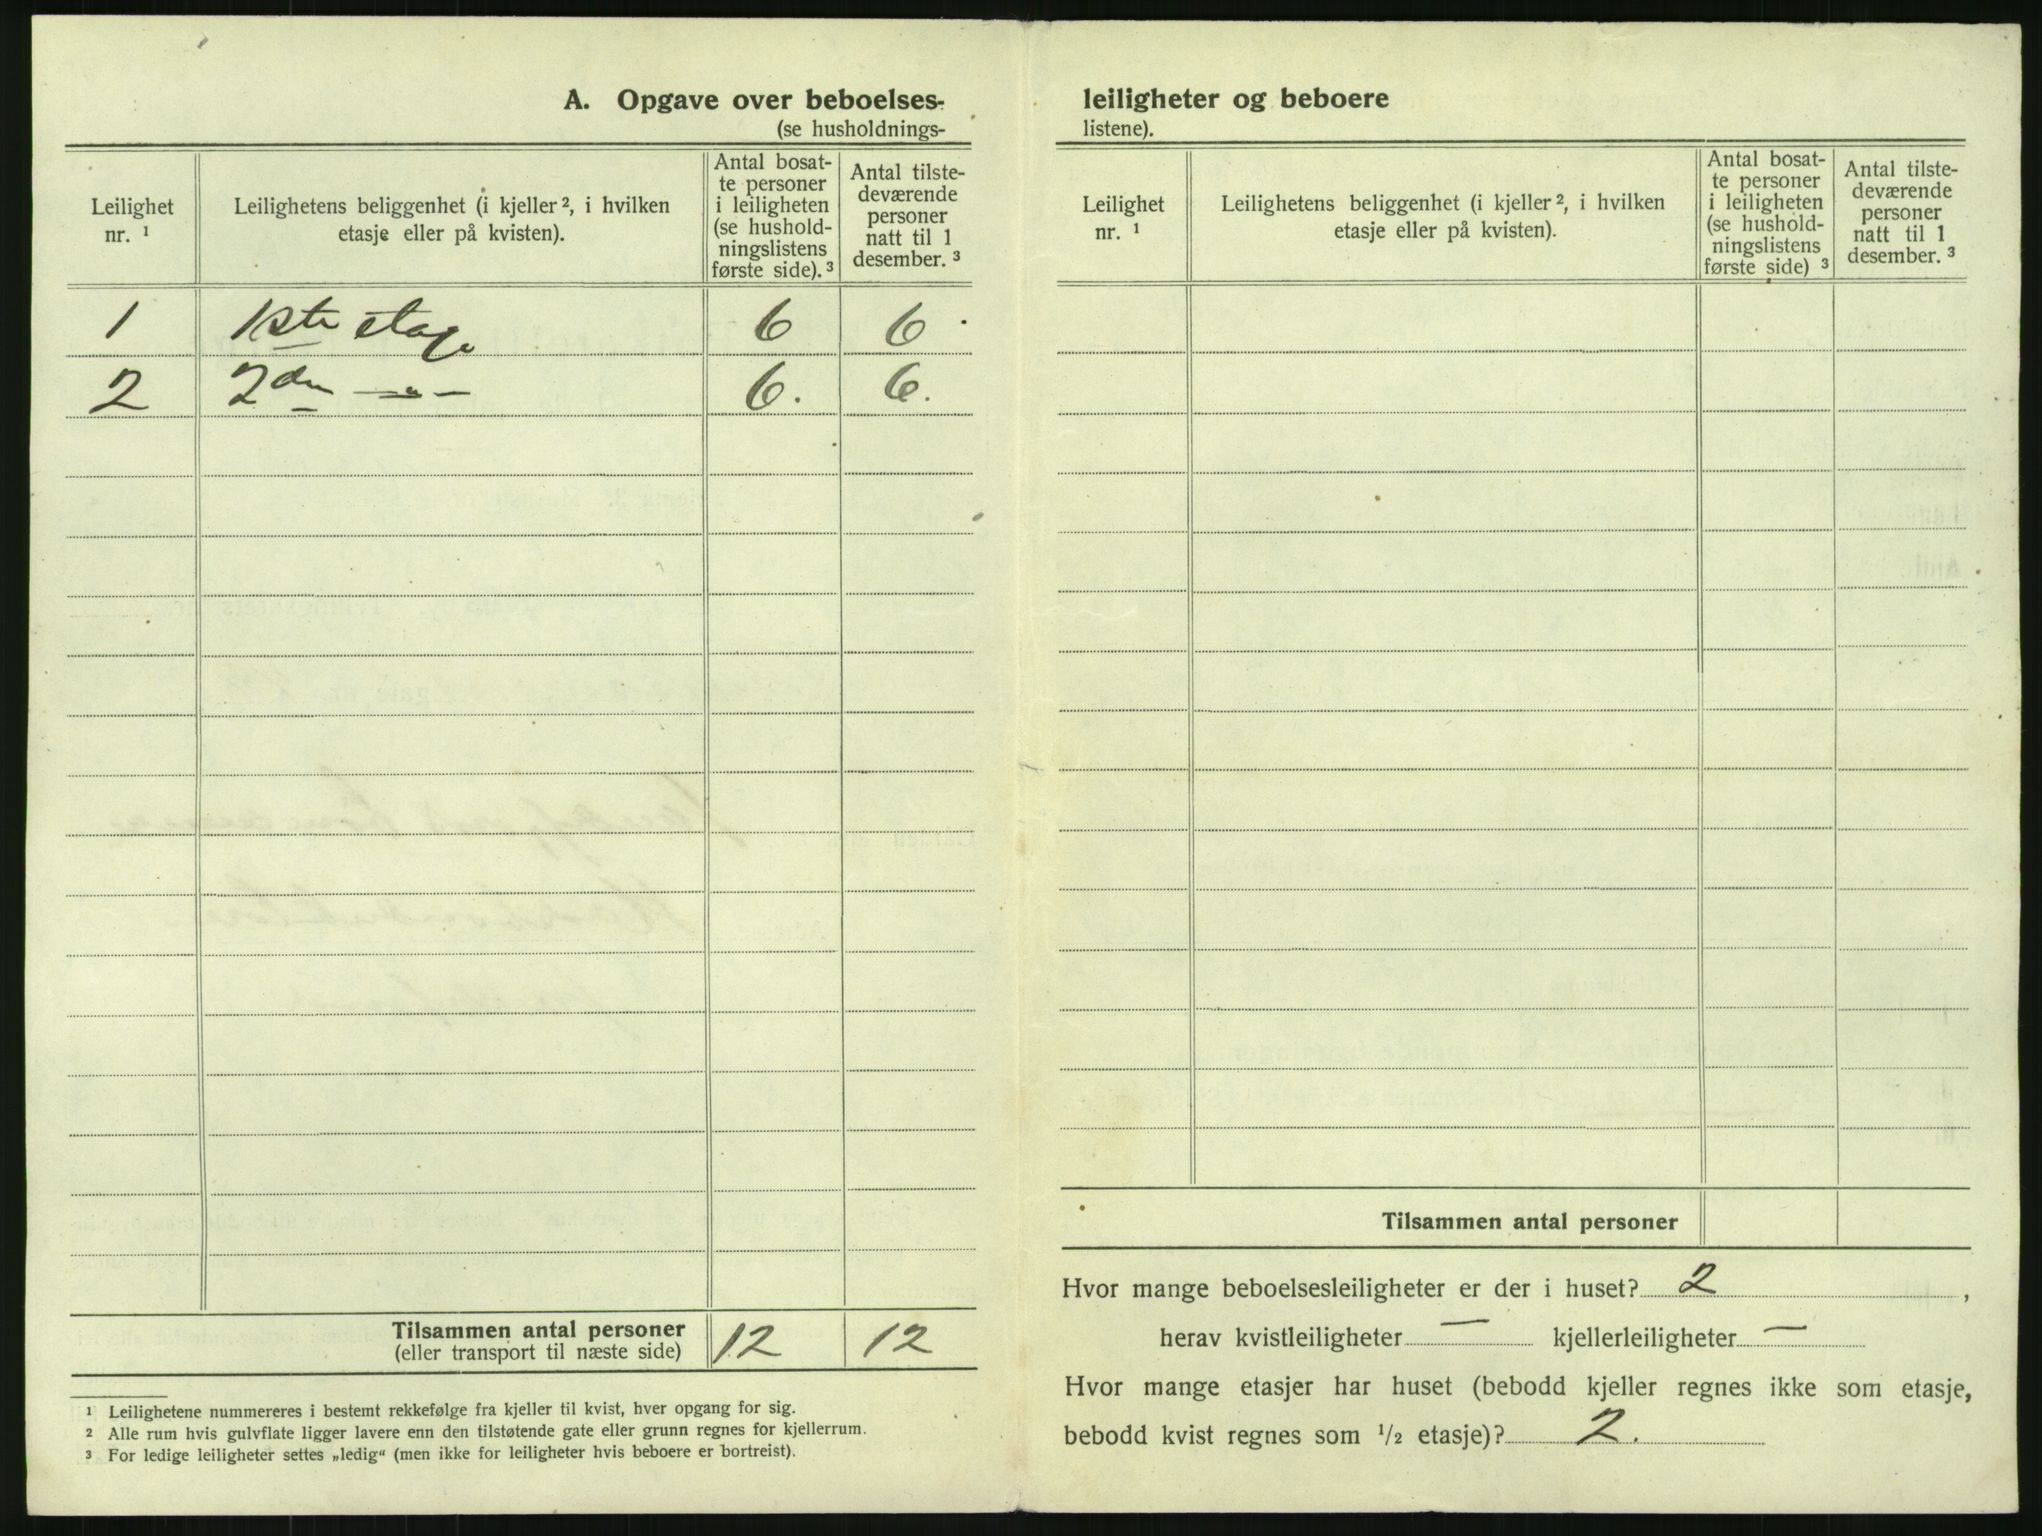 A. Opgave over beboelses-
(se husholdnings-
Leilighet
nr. ¹
Leilighetens beliggenhet (i kjeller ², i hvilken
etasje eller på kvisten).
Antal bosat-
te personer
i leiligheten
(se hushold-
ningslistens
første side). ³
Antal tilste-
deværende
personer
natt til 1
desember. ³
1 1ste etage 6 6
2 2den —„— 6. 6.
Tilsammen antal personer 12 12
(eller transport til næste side)
¹ Leilighetene nummereres i bestemt rekkefølge fra kjeller til kvist, hver opgang for sig.
² Alle rum hvis gulvflate ligger lavere enn den tilstøtende gate eller grunn regnes for kjellerrum.
³ For ledige leiligheter settes „ledig“ (men ikke for leiligheter hvis beboere er bortreist).
leiligheter og beboere
listene).
Leilighet
nr. ¹
Leilighetens beliggenhet (i kjeller ², i hvilken
etasje eller på kvisten).
Antal bosat-
te personer
i leiligheten
(se hushold-
ningslistens
første side) ³
Antal tilste-
deværende
personer
natt til 1
desember. ³
Tilsammen antal personer
Hvor mange beboelsesleiligheter er der i huset? 2 ,
herav kvistleiligheter — kjellerleiligheter —
Hvor mange etasjer har huset (bebodd kjeller regnes ikke som etasje,
bebodd kvist regnes som ½ etasje)? 2.